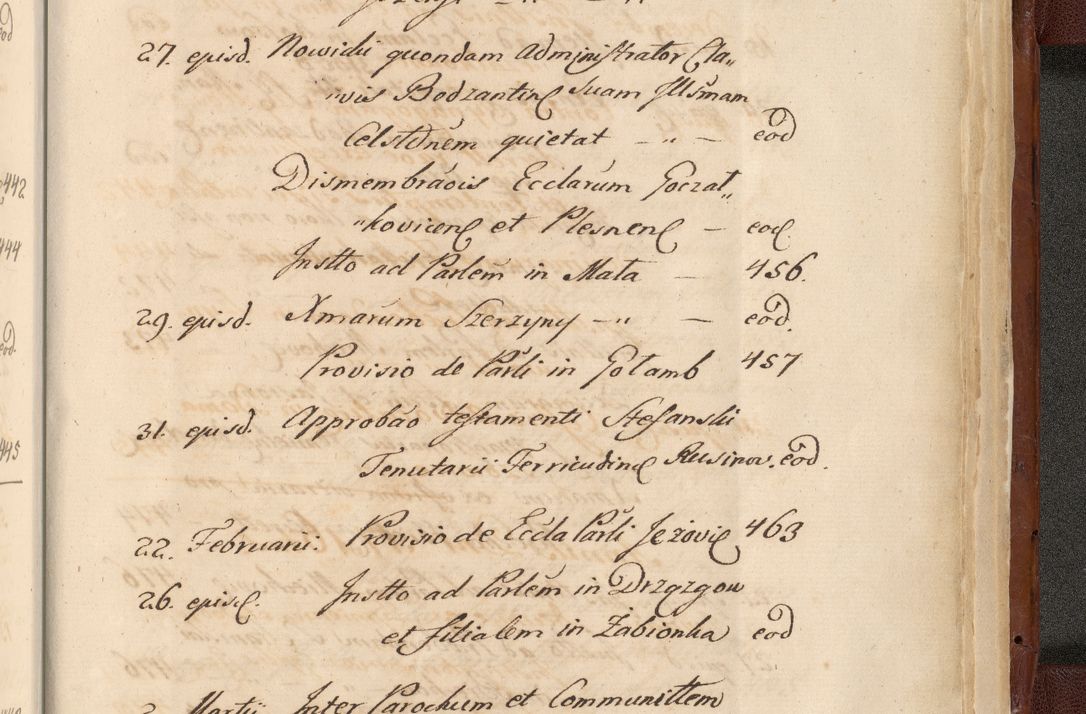 27. ejusd. Nowicki quondam Adminjstrator Cla„
„vis Bodzantinę suam Jllsm̃am
Celstd̃nem quietat — „ — eod̃
Dismembrãois Eccl̃arum Goczał„
„kovicenę et Plesnenę — eod.
Jnstto ad Parlem̃ in Mała — 456.
29. ejusd. Xmarum Szerzyny — „ — eod̃.
Provisio de Parl̃i in Gołamb 457
31. ejusd. Approbão testamenti Stefanski
Tenutarii Ferricudinę Rusinov. eod̃.
22. Februarii. Provisio de Eccl̃a Parl̃i Jeżovię 463
26. ejusd. Jnstto ad Parlem̃ in Drzązgow
et filialem in Żabionka eod̃
Martij Jnter Parochum et Communitt̃em
442
444
eod.
445